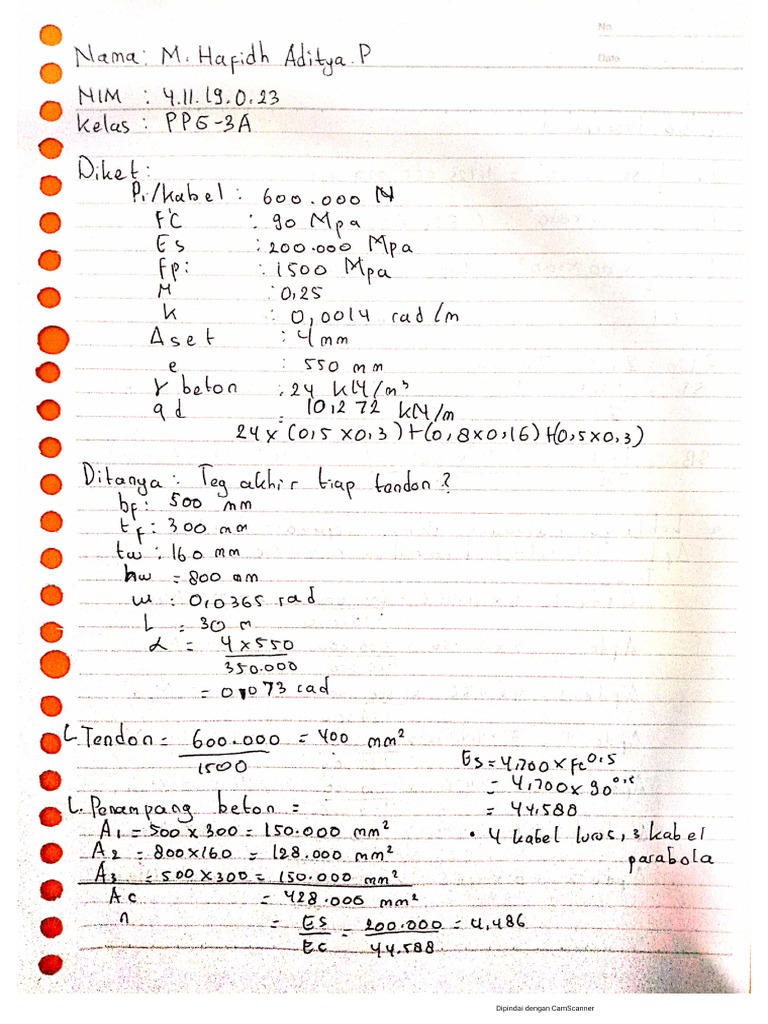 No.
Date
Nama : M. Hafidh Aditya. P
NIM : 4.11.19.0.23
Kelas : PPG-3A
Diket :
Pi/kabel : 600.000 N
F'C : 90 Mpa
Es : 200.000 Mpa
Fpi : 1500 Mpa
M : 0,25
k : 0,0014 rad/m
Aset : 4 mm
e : 550 mm
γ beton : 24 kN/m³
qd = 10,272 kN/m
24 x (0,5 x 0,3) + (0,8 x 0,16) + (0,5 x 0,3)
Ditanya : Teg akhir tiap tendon ?
bf : 500 mm
tf : 300 mm
tw : 160 mm
hw = 800 mm
w : 0,0365 rad
L = 30 m
α = 4 x 550
350.000
= 0,073 rad
L Tendon = 600.000 = 400 mm²
1500
Es = 4,700 x fc^0,5
= 4,700 x 90^0,5
= 44.588
L. Penampang beton =
A1 = 500 x 300 = 150.000 mm²
A2 = 800 x 160 = 128.000 mm²
A3 = 500 x 300 = 150.000 mm²
Ac = 428.000 mm²
• 4 kabel lurus, 3 kabel
parabola
n = Es = 200.000 = 4,486
Ec 44.588
Dipindai dengan CamScanner